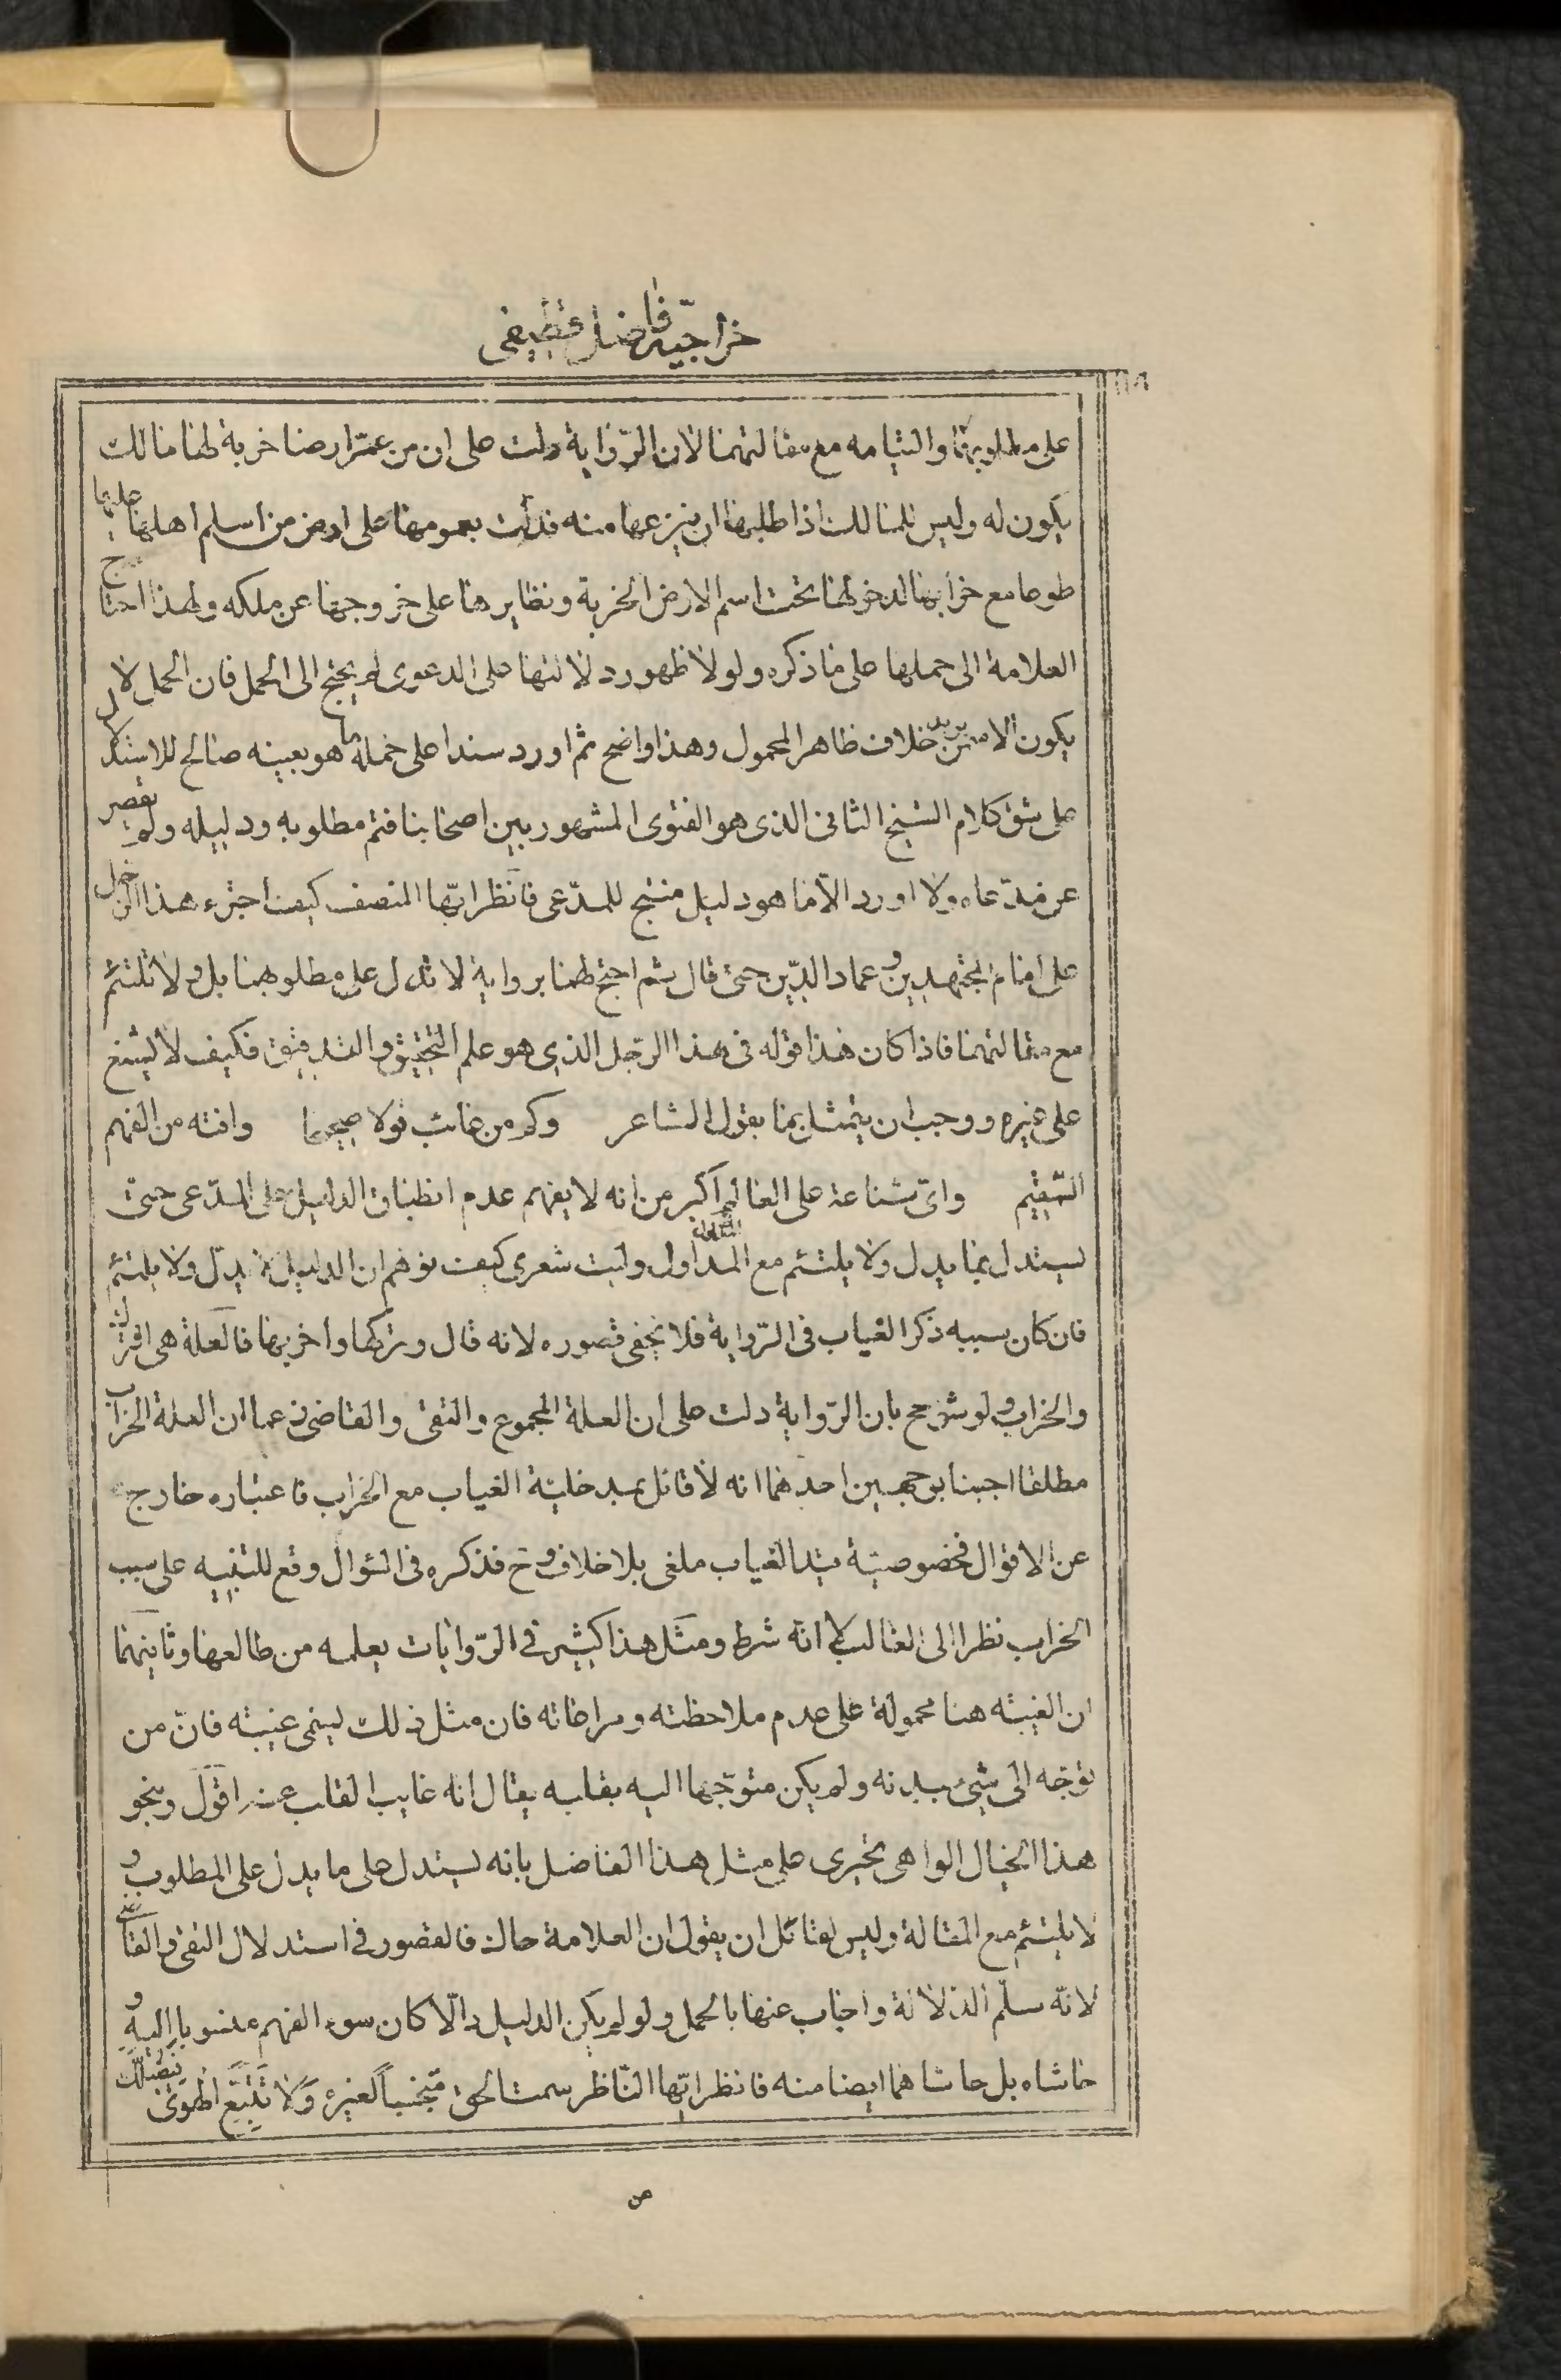 خراجيّة فاضل قطيفى
على مطلوبهما والتيامه مع مقالتهما لان الرّواية دلت على ان من عمّر ارضا خربة لها مالك
يكون له وليس للمالك اذا طلبها ان ينزعها منه فدلّت بعمومها على ارض من اسلم اهلها عليها
طوعا مع خرابها لدخولها تحت اسم الارض الخربة ونظايرها على خروجها عن ملكه ولهذا احتاج
العلامة الى حملها على ما ذكره ولولا ظهور دلالتها على الدعوى لم يحتج الى الحمل فان الحمل لا
يكون الا ممن يريد خلاف ظاهر المحمول وهذا واضح ثم اورد سندا على حمله ما هو بعينه صالح للاستدلال
على شق كلام الشيخ الثانى الذى هو الفتوى المشهور بين اصحابنا فتم مطلوبه ودليله ولم يقصر
عن مدّعاه ولا اورد الّا ما هو دليل منتج للمدّعى فانظر ايّها المنصف كيف اجترء هذا الرّجل
على امام المجتهدين وعماد الدّين حتى قال ثم احتج لهما برواية لا تدل على مطلوبهما بل ولا تلتئم
مع مقالتهما فاذا كان هذا قوله فى هذا الرّجل الذى هو علم التحقيق والتدقيق فكيف لا يشنع
على غيره ووجب ان يتمثل بما يقول الشاعر وكم من غائب قولا صحيحا وافته من الفهم
السّقيم واىّ شناعة على العالم اكبر من انه لا يفهم عدم انطباق الدليل على المدّعى حتى
يستدل بما يدل ولا يلتئم مع المدلول وليت شعرى كيف توهم ان الدليل يدلّ ولا يلتئم
فان كان سببه ذكر الغياب فى الرّواية فلا يخفى قصوره لانه قال وتركها واخربها فالعلة هى الترك
والخراب ولو شرح بان الرّواية دلت على ان العلة المجموع والتقى والقاضى زعما ان العلة الخراب
مطلقا اجبنا بوجهين احدهما انه لا قائل بمدخليّة الغياب مع الخراب فاعتباره خارج
عن الاقوال فخصوصيّة قيد الغياب ملغى بلا خلاف وح فذكره فى السّوال وقع للتنبيه على سبب
الخراب نظرا الى الغالب لا انّه شرط ومثل هذا كثير فى الرّوايات يعلمه من طالعها وثانيهما
ان الغيبة هنا محمولة على عدم ملاحظته ومراعاته فان مثل ذلك يسمى غيبته فانّ من
توجّه الى شىء ببدنه ولم يكن متوجّها اليه بقلبه يقال انه غايب القلب عنه اقول وبنحو
هذا الخيال الواهى تجرى على مثل هذا الفاضل بانه يستدل على ما يدل على المطلوب و
لا يلتئم مع المقالة وليس لقائل ان يقول ان العلامة حاك فالقصور فى استدلال التقى والقاضى
لانّه سلّم الدلالة واجاب عنها بالحمل ولو لم يكن الدليل دالّا كان سوء الفهم منسوبا اليه و
حاشاه بل حاشاهما ايضا منه فانظر ايّها النّاظر سمت الحق متجنباً لغيره وَلا تَتَّبِعِ الهَوىٰ فَيُضِلَّكَ
من